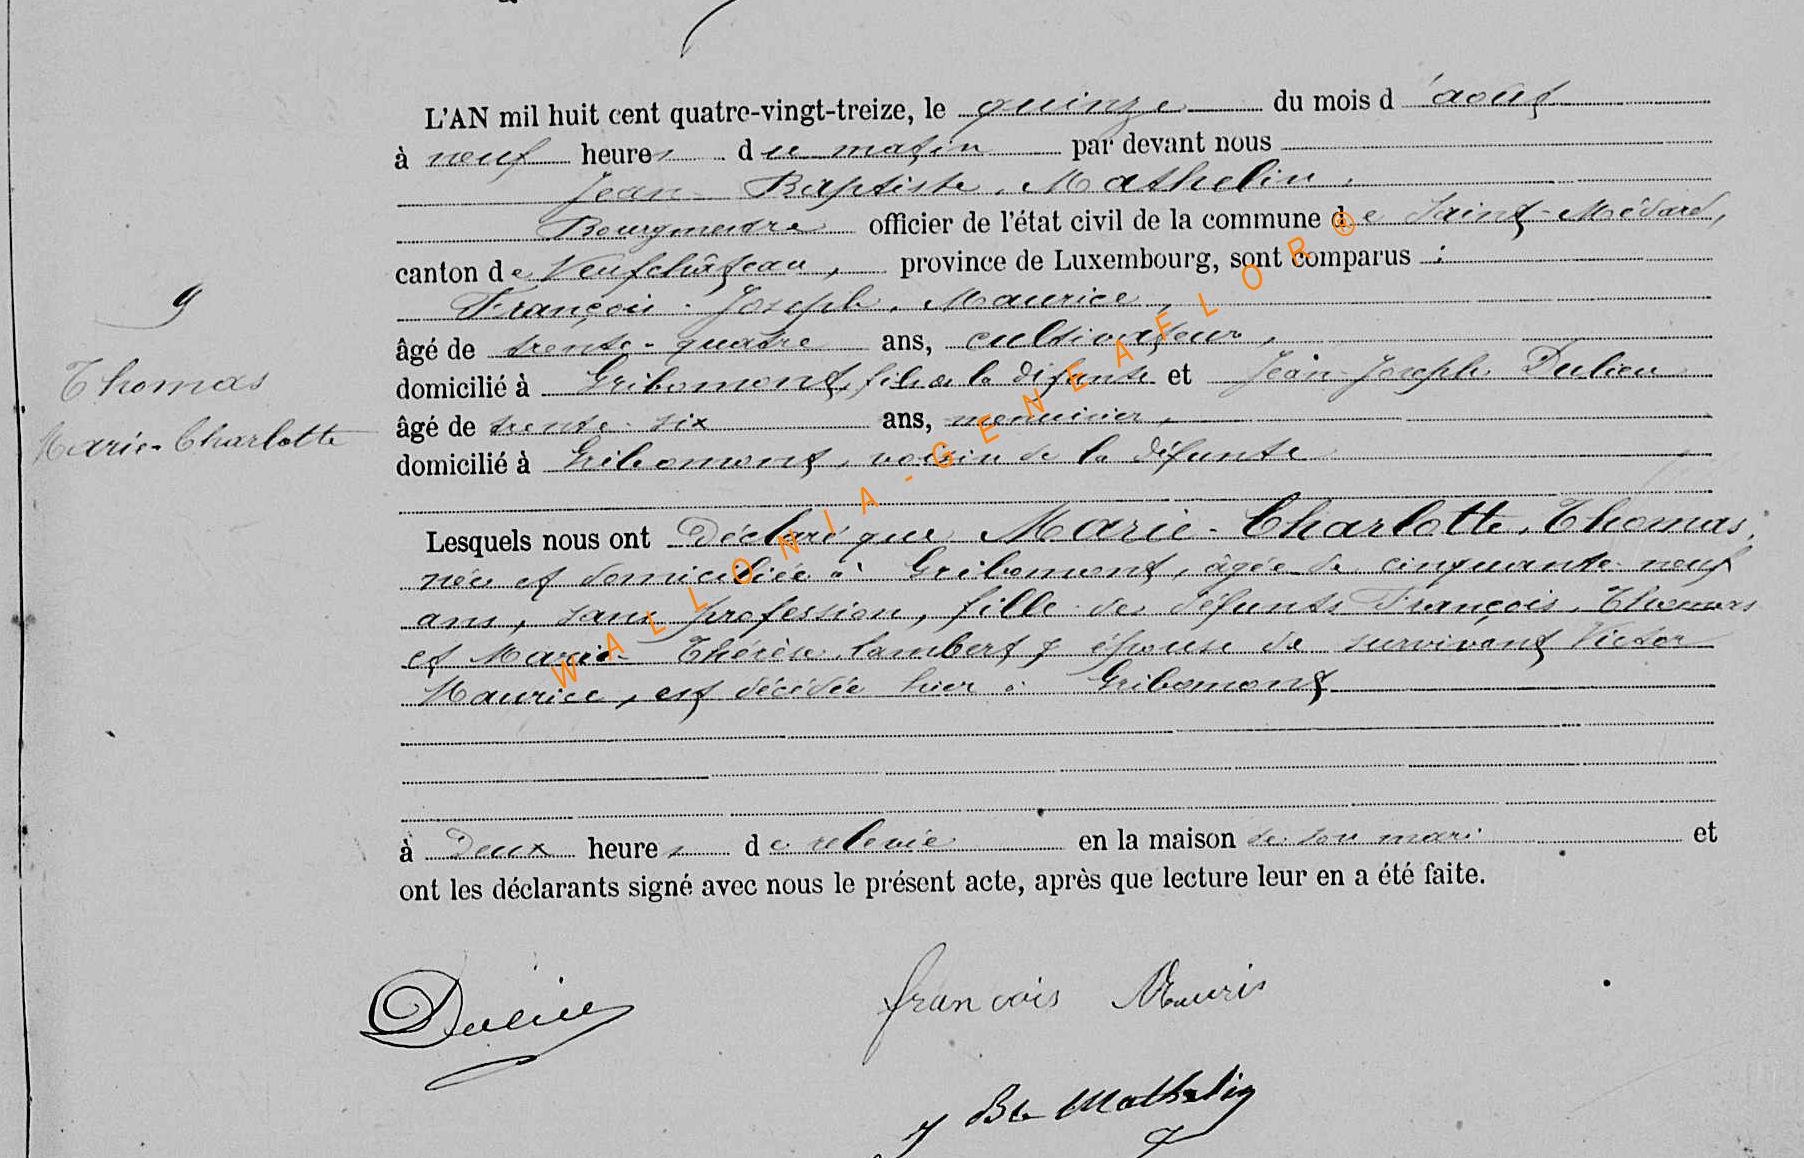 L'AN mil huit cent quatre-vingt-treize, le quinze du mois d'août
à neuf heures du matin par devant nous
Jean-Baptiste Mathelin,
Bourgmestre officier de l'état civil de la commune de Saint-Médard,
canton de Neufchâteau, province de Luxembourg, sont comparus :
François-Joseph Maurice,
âgé de trente-quatre ans, cultivateur,
domicilié à Gribomont, fils de la défunte et Jean-Joseph Dulieu
âgé de trente-six ans, menuisier,
domicilié à Gribomont, voisin de la défunte
9
Thomas
Marie-Charlotte
Lesquels nous ont déclaré que Marie-Charlotte Thomas,
née et domiciliée à Gribomont, âgée de cinquante-neuf
ans, sans profession, fille des défunts François Thomas
et Marie-Thérèse Lambert, épouse de survivant Victor
Maurice, est décédée hier à Gribomont
à deux heures de relevée en la maison de son mari et
ont les déclarants signé avec nous le présent acte, après que lecture leur en a été faite.
Dulieu
francois Mauris
J Bte Mathelin
WALLONIA-GENEAFLOR®